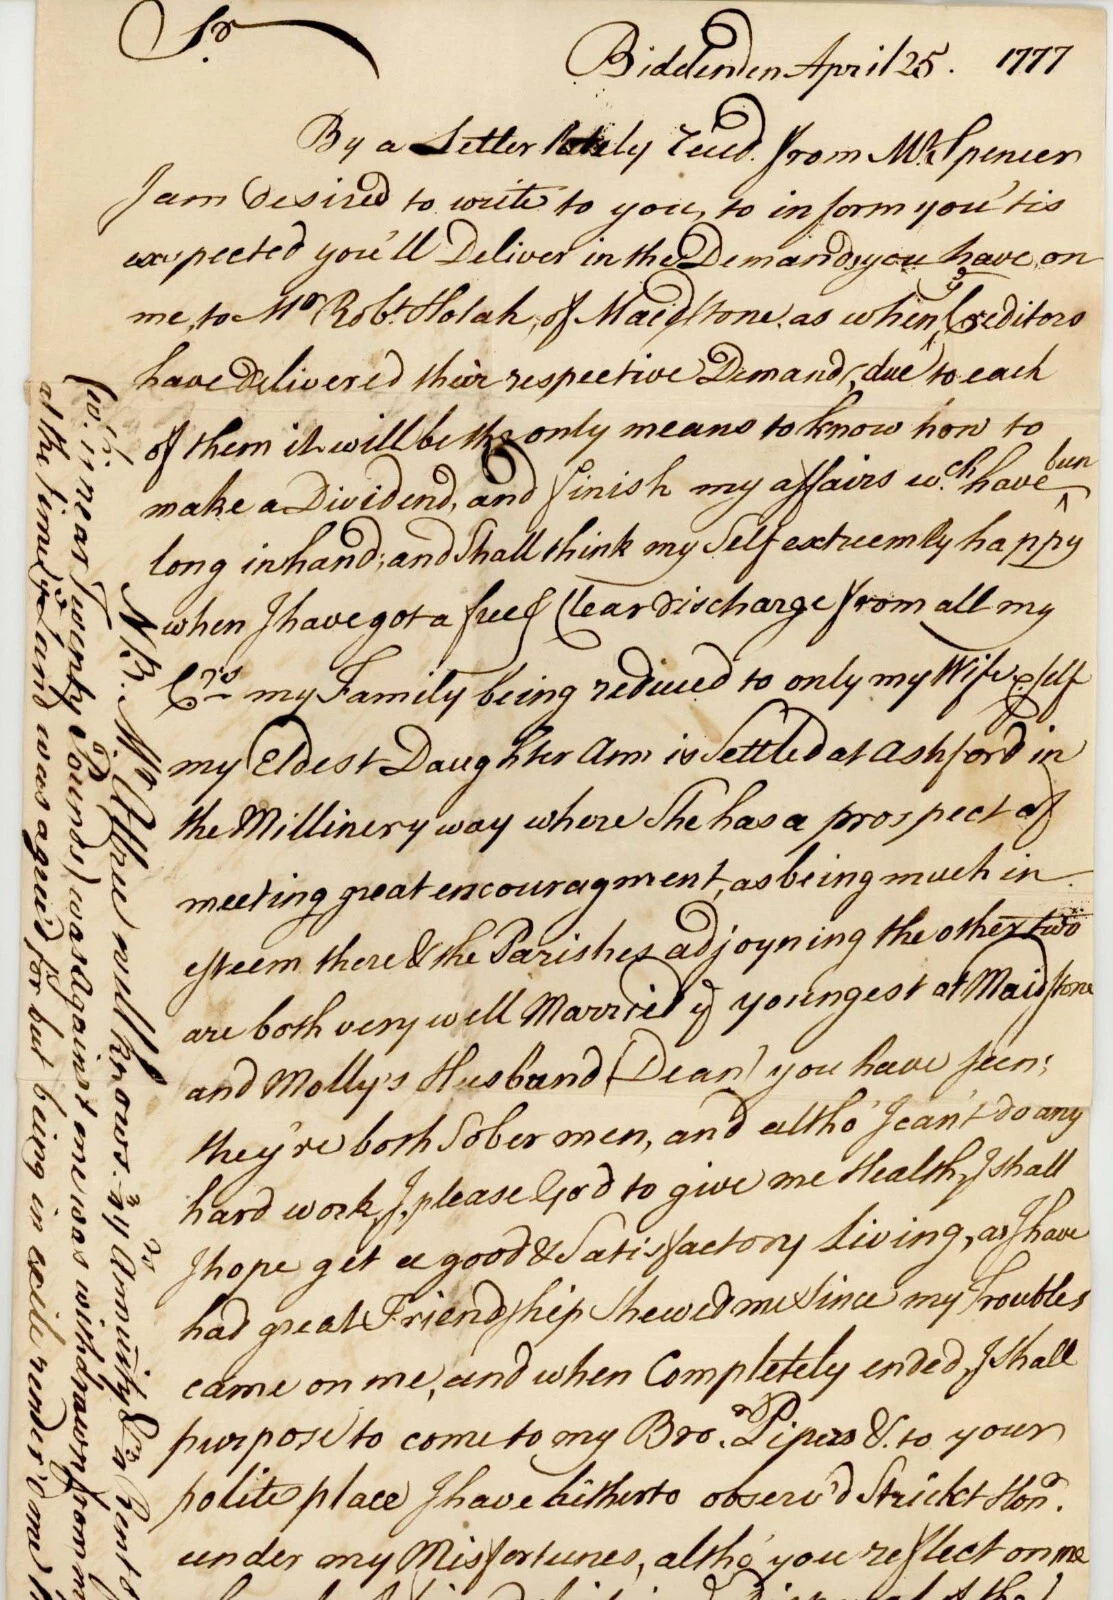 Sr.
Biddenden April 25. 1777
By a Letter lately recd. from Mr. Spencer
I am desired to write to you, to inform you 'tis
expected you'll Deliver in the Demands you have on
me, to Mr Robt. Holah, of Maidstone. as when ye Creditors
have delivered their respective Demands, due to each
of them it will be the only means to know how to
make a Dividend, and finish my affairs wch. have been
long in hand; and shall think my Self extreemly happy
when I have got a free & Clear discharge from all my
Crs. my Family being reduced to only my Wife & self
my Eldest Daughter Ann is Settled at Ashford in
the Millinery way where She has a prospect of
meeting great encouragment, as being much in
esteem there & the Parishes adjoyning the other two
are both very well Married ye youngest at Maidstone
and Molly's Husband (Dean) you have seen;
they're both Sober men, and altho' I can't do any
hard work, I, please God to give me Health, I shall
I hope get a good & Satisfactory living, as I have
had great Friendship shewed me Since my Troubles
came on me, and when Completely ended, I shall
purpose to come to my Bro. Pipers &. to your
polite place I have hitherto observ'd Strickt Honr.
under my Misfortunes, altho' you reflect on me
of the
N.B. Mr. well knows. my Annuity & Rents
(wch. is near Twenty Pounds) was against me was withdrawn from m
at the time and was agreed for but being in